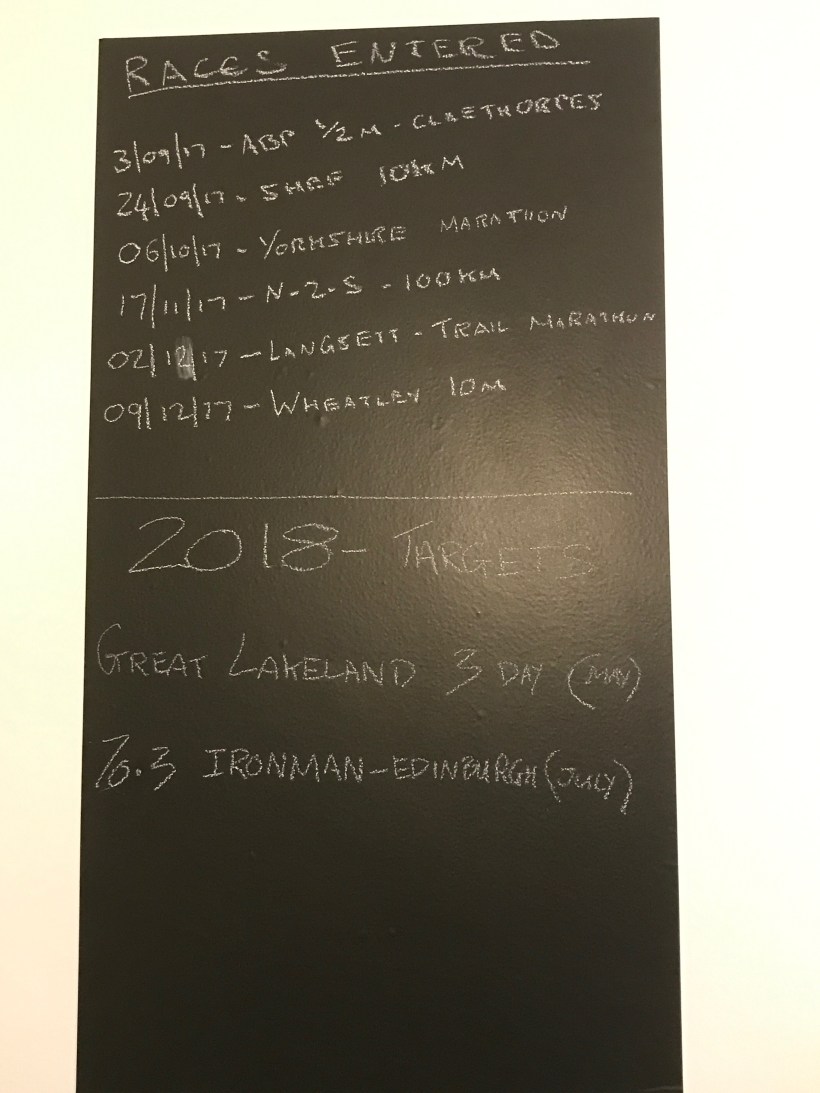 RACES ENTERED
3/09/17 - ABP 1/2 M - CLEETHORPES
24/09/17 - SHEF 10KM
06/10/17 - YORKSHIRE MARATHON
17/11/17 - N-2-S - 100KM
02/12/17 - LANGSETT - TRAIL MARATHON
09/12/17 - WHEATLEY 10M
2018 - TARGETS
GREAT LAKELAND 3 DAY (MAY)
70.3 IRONMAN - EDINBURGH (JULY)